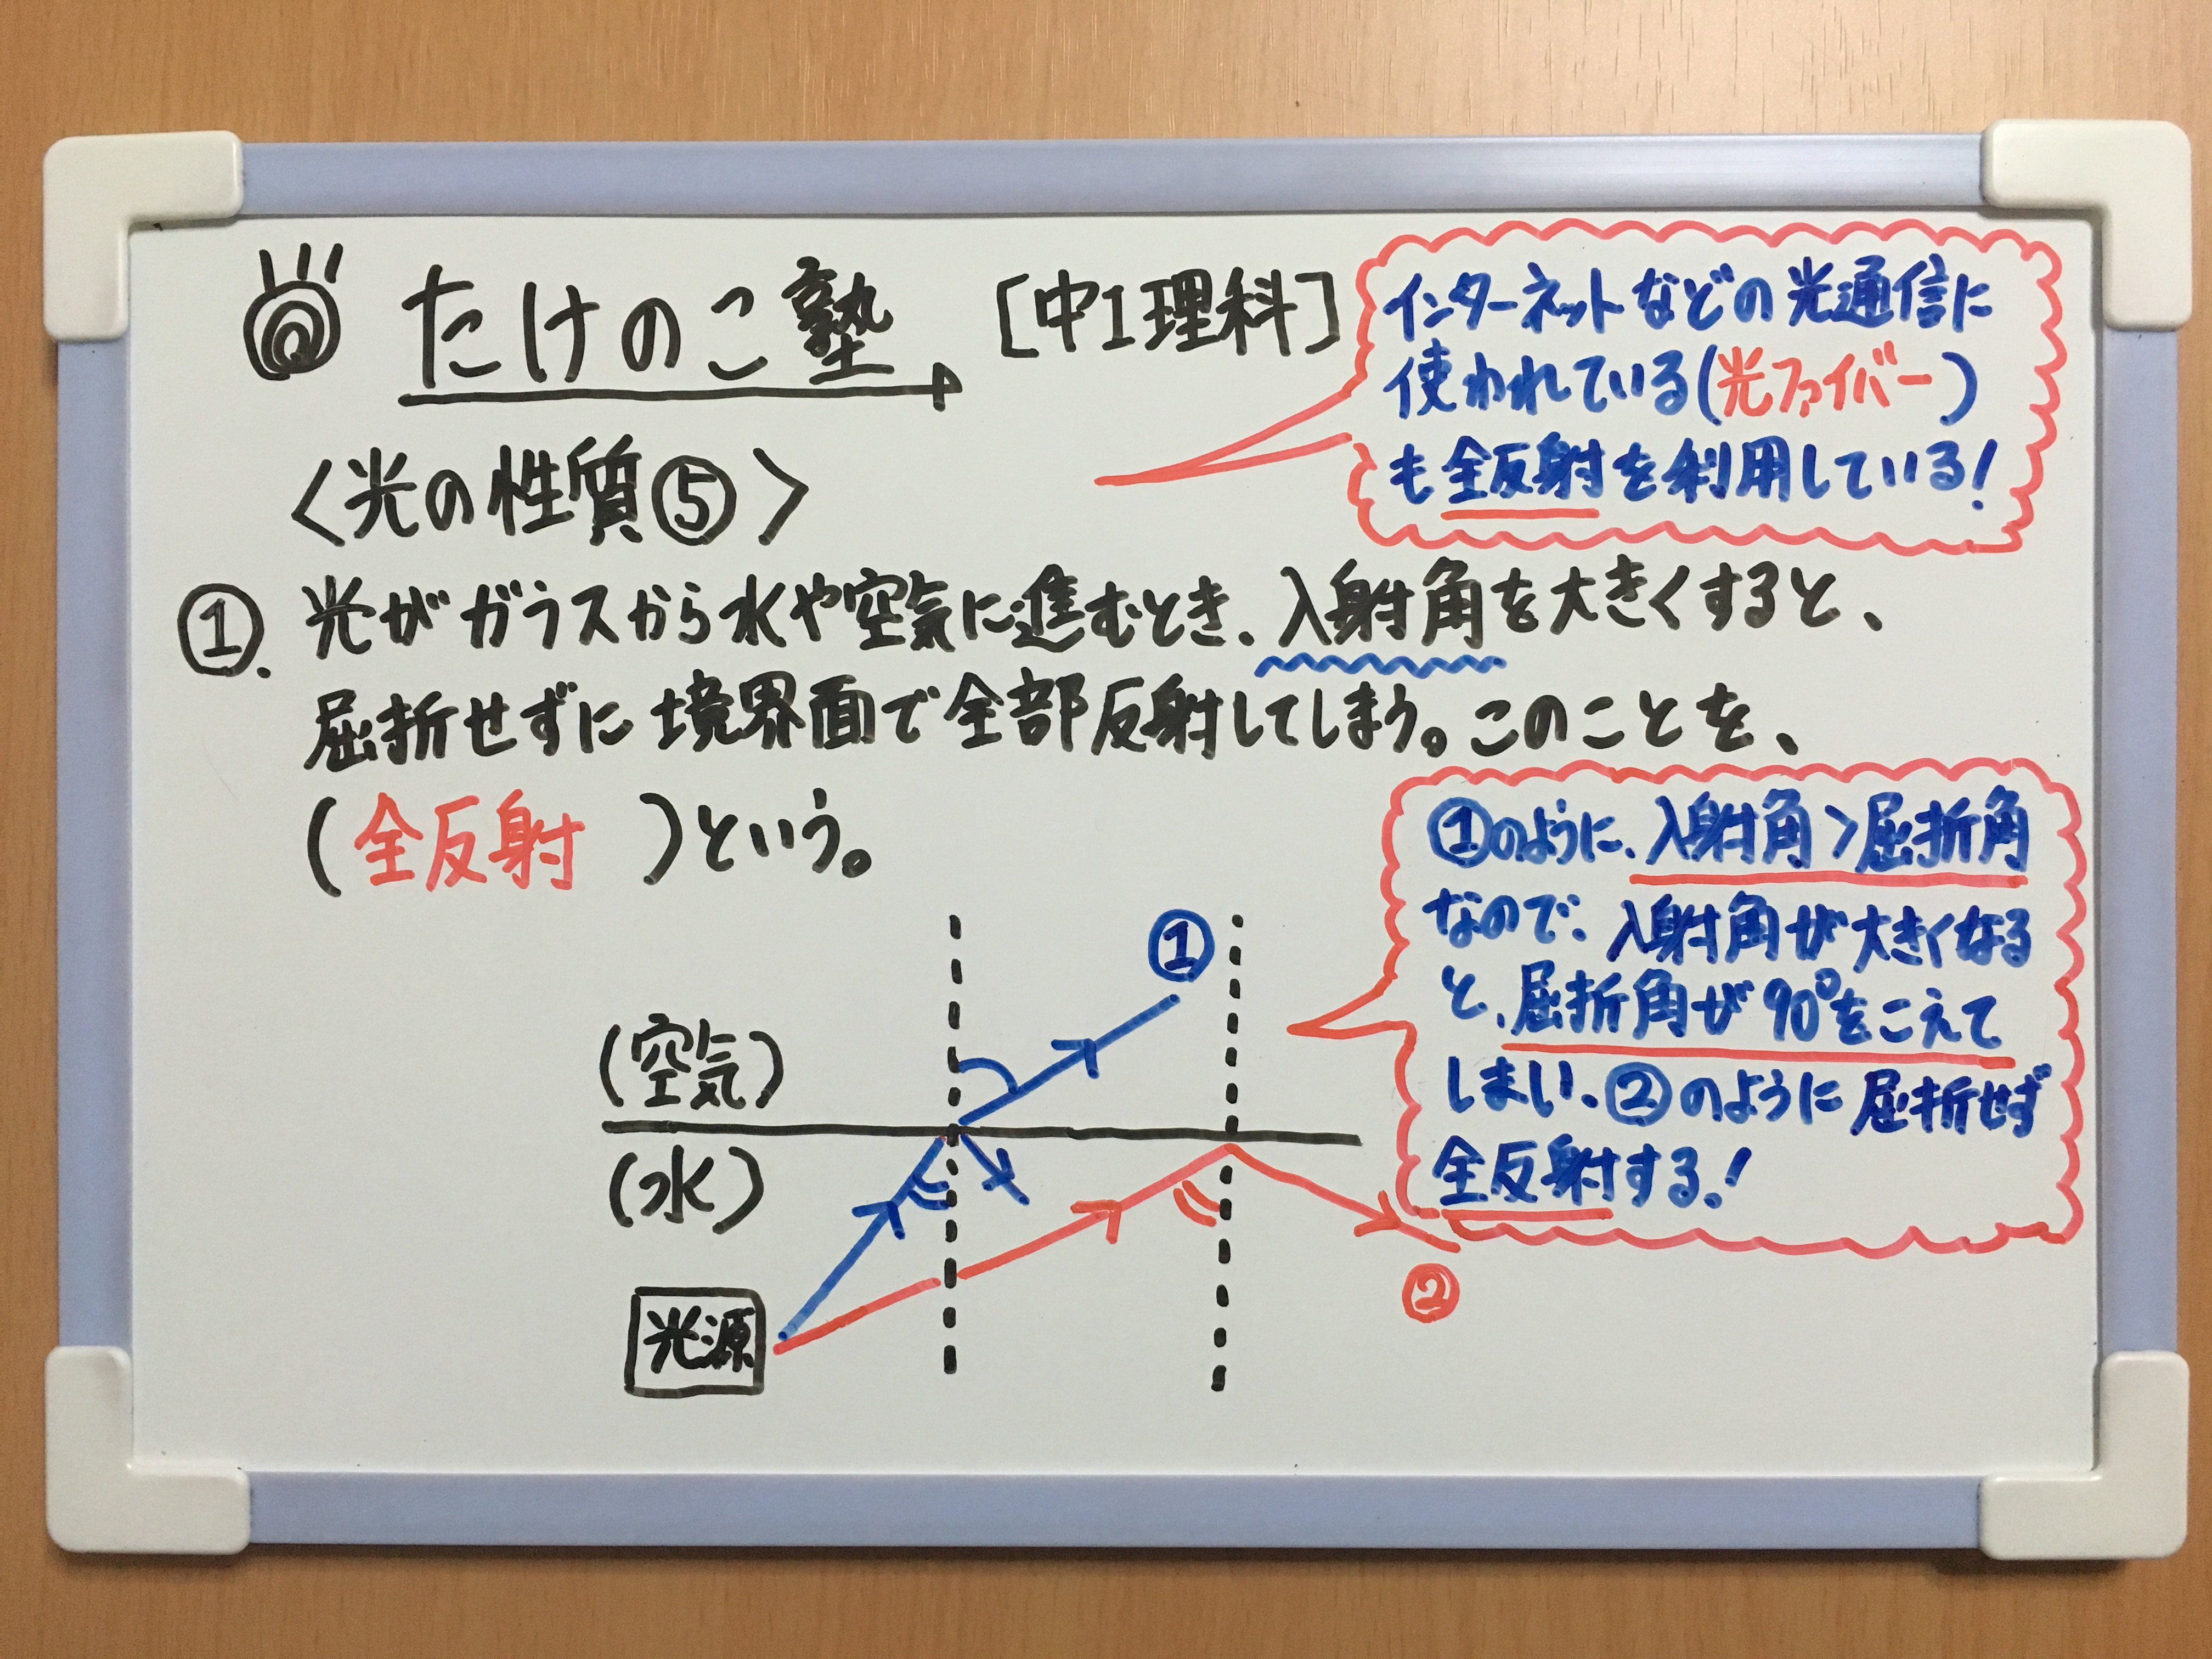 たけのこ塾 [中1理科]
インターネットなどの光通信に
使われている(光ファイバー)
も全反射を利用している!
<光の性質⑤>
①. 光がガラスから水や空気に進むとき、入射角を大きくすると、
屈折せずに境界面で全部反射してしまう。このことを、
(全反射)という。
①のように、入射角>屈折角
なので、入射角が大きくなる
と、屈折角が90°をこえて
しまい、②のように屈折せず
全反射する!
①
(空気)
(水)
光源
②